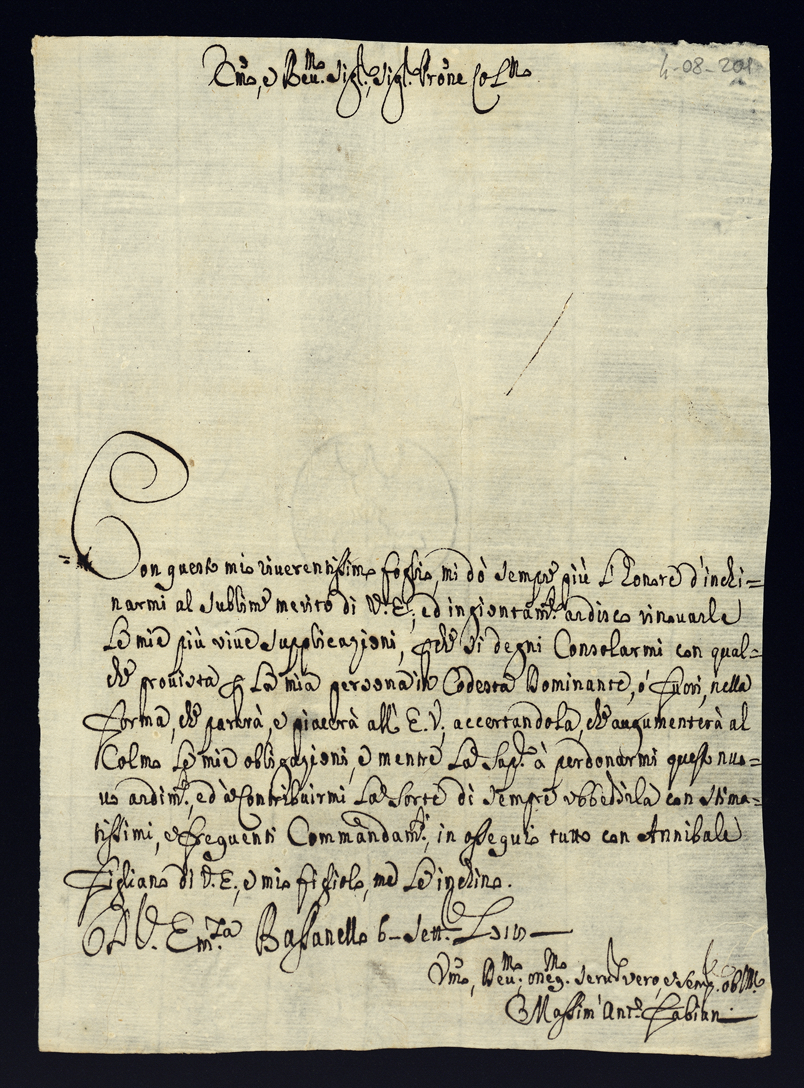 4-08-201
Em̃o, e Reu.mo Sig.r, Sig.r Pr̃one Col.mo
Con questo mio riuerentissimo foglio, mi dò sempre più l'honore d'inchi=
narmi al sublime merito di V. E., ed ingiontam.te ardisco rinouarle
le mie più viue supplicazioni, perche si degni Consolarmi con qual=
che prouista per la mia persona in Codesta Dominante, ó fuori, nella
forma, che parerà, e piacerà all' E. V., accertandola, che augumenterà al
Colmo le mie obligazioni, e mentre la Sup.co à perdonarmi questo nuo=
uo ardim.to, ed à Contribuirmi la sorte di sempre obbedirla con stima=
tissimi, e frequenti Commandam.ti, in ossequio tutto con Annibale
figliano di V. E., e mio figliolo, me le inchino.
Di V. Em.za Bassanello 6 Sett.e
Vm̃o, Deu.mo, seru.e vero, e semp. obl.mo
Massim' Ant.o Fabian